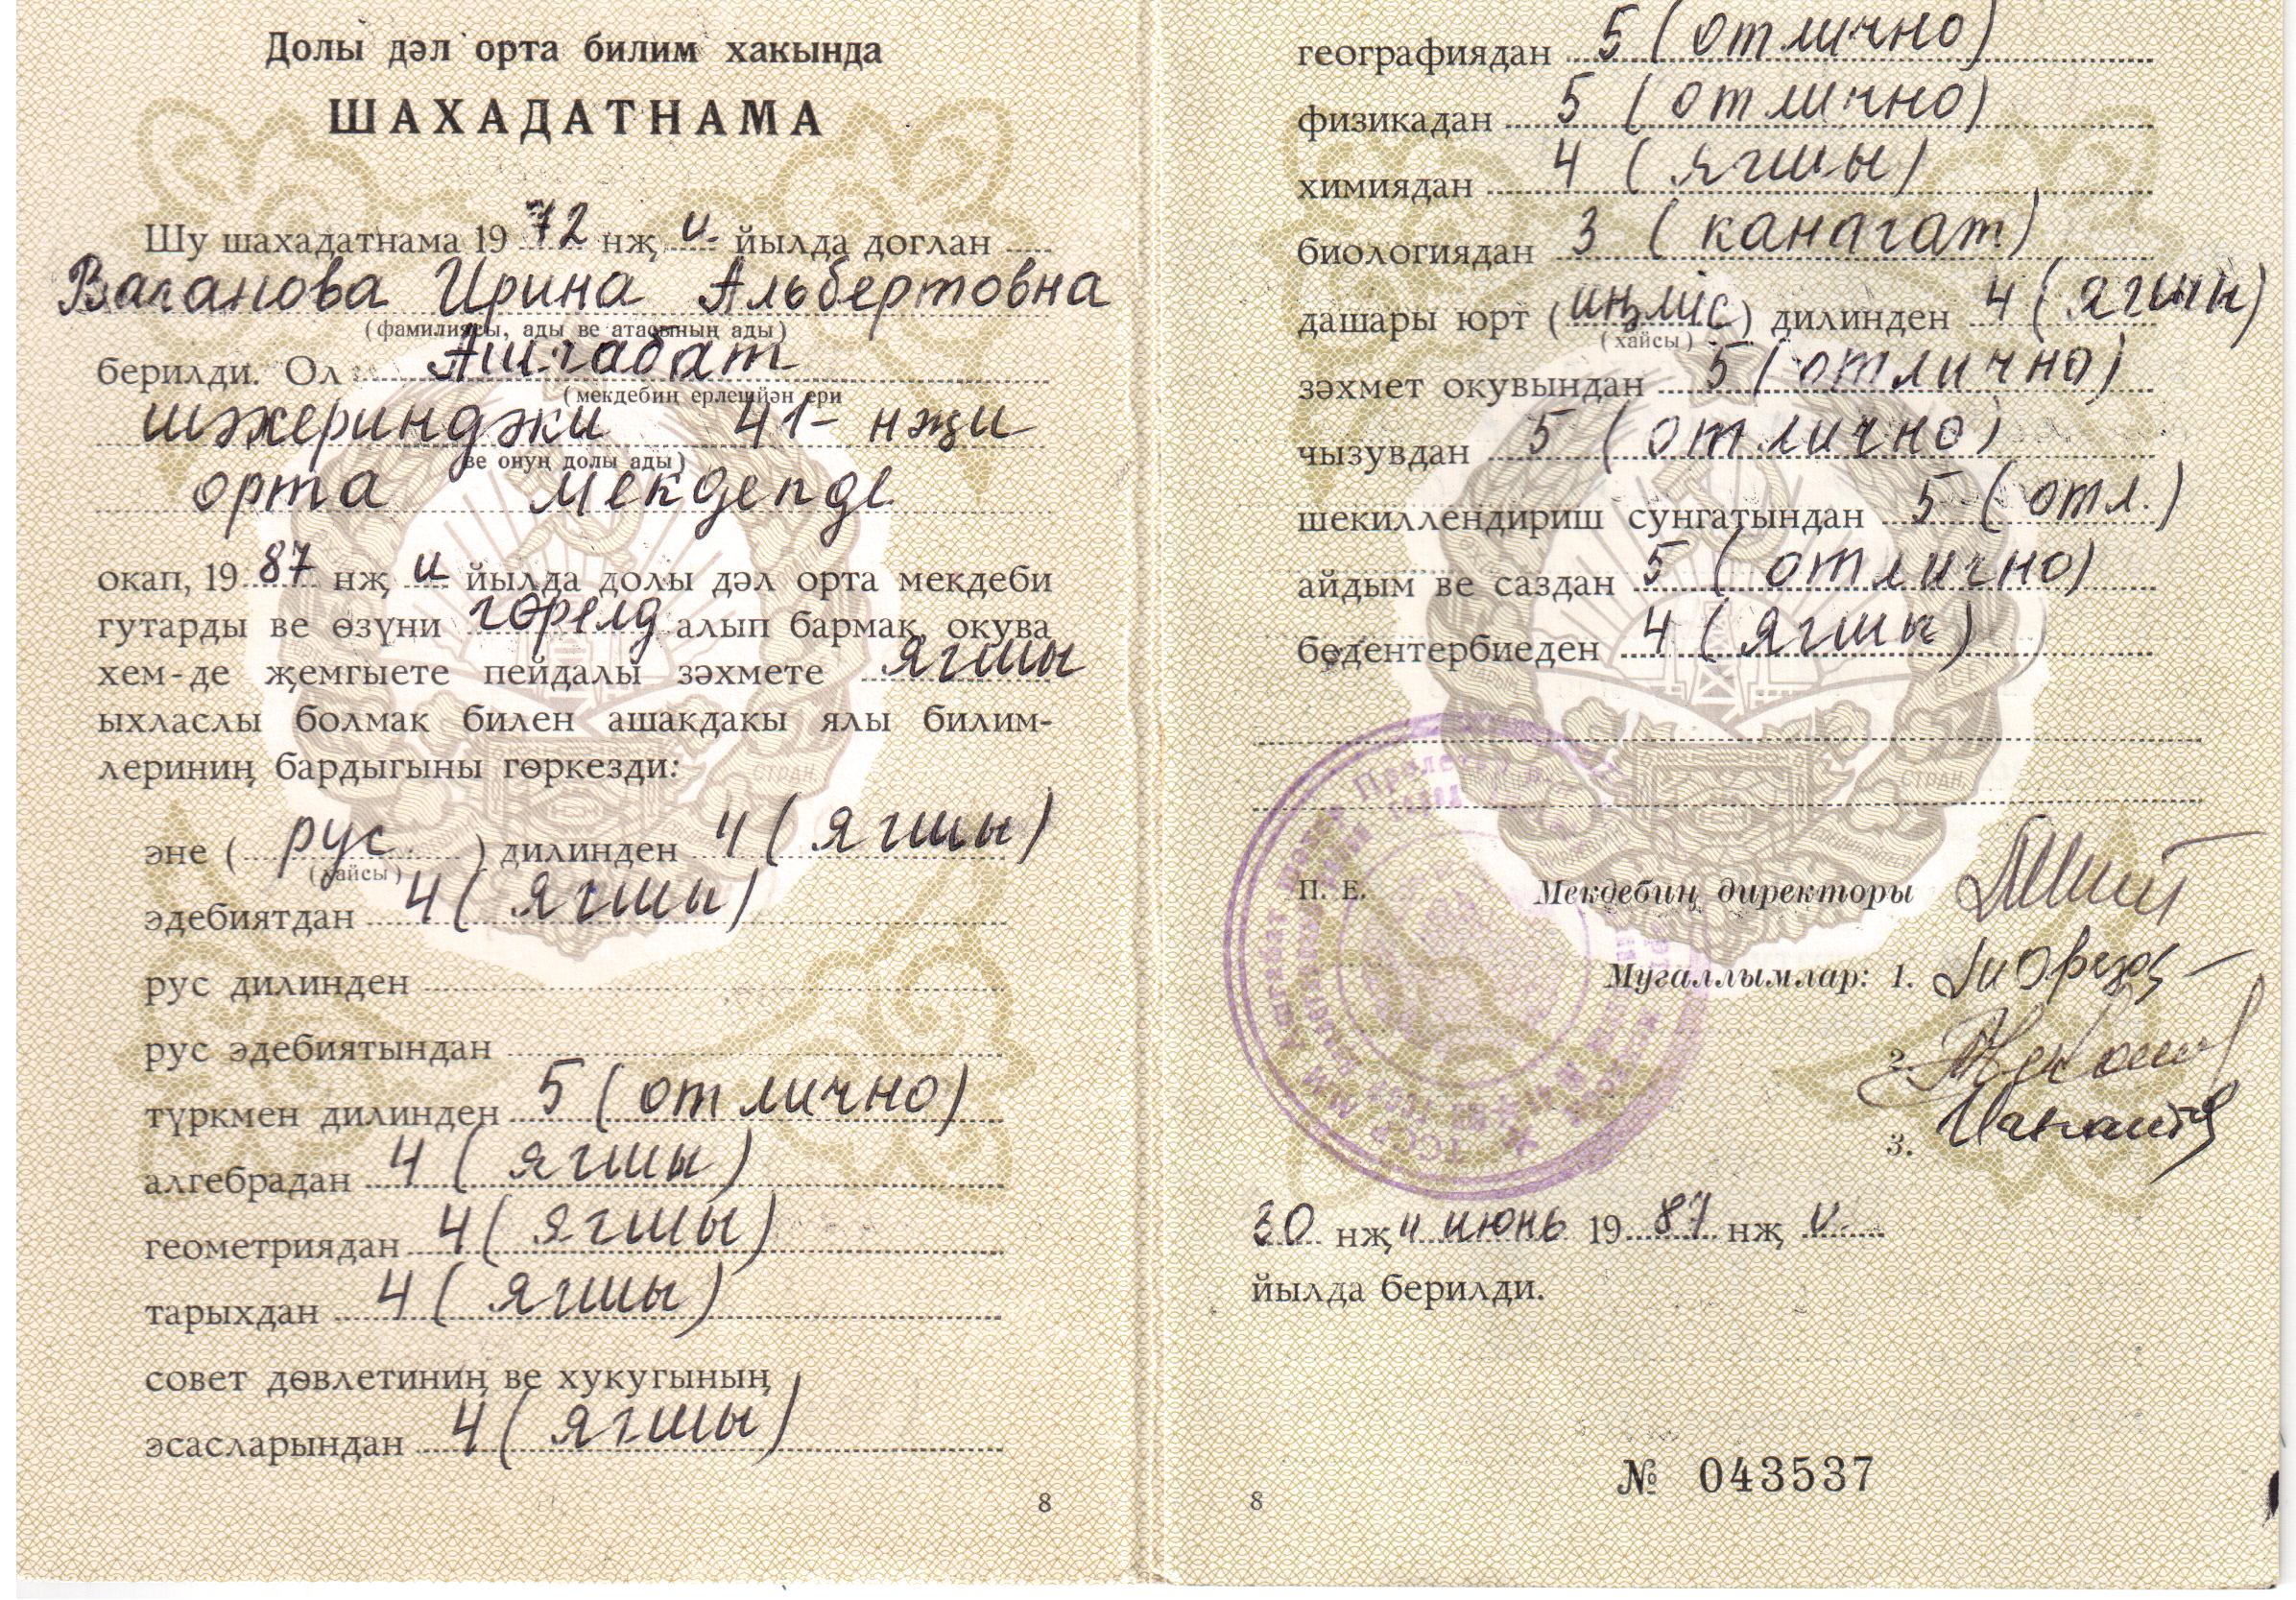 Долы дәл орта билим хакында
ШАХАДАТНАМА
Шу шахадатнама 1972 нҗ и. йылда доглан
Ваганова Ирина Альбертовна
(фамилиясы, ады ве атасының ады)
берилди. Ол Ашгабат
(мекдебиң ерлешйән ери
шәхериндәки 41-нҗи
ве онуң долы ады)
орта мекдепде
окап, 1987 нҗ и йылда долы дәл орта мекдеби
гутарды ве өзүни гөрелд алып бармак, окува
хем-де җемгыете пейдалы зәхмете ягшы
ыхласлы болмак билен ашакдакы ялы билим-
лериниң бардыгыны гөркезди:
эне (рус.) дилинден 4 (ягшы)
(хайсы)
эдебиятдан 4 (ягшы)
рус дилинден
рус эдебиятындан
түркмен дилинден 5 (отлично)
алгебрадан 4 (ягшы)
геометриядан 4 (ягшы)
тарыхдан 4 (ягшы)
совет дөвлетиниң ве хукугының
эсасларындан 4 (ягшы)
8
географиядан 5 (отлично)
физикадан 5 (отлично)
химиядан 4 (ягшы)
биологиядан 3 (канагат.)
дашары юрт (иңлис) дилинден 4 (ягшы)
(хайсы)
зәхмет окувындан 5 (отлично)
чызувдан 5 (отлично)
шекиллендириш сунгатындан 5 (отл.)
айдым ве саздан 5 (отлично)
бедентербиеден 4 (ягшы)
П. Е. Мекдебиң директоры
Мугаллымлар: 1.
2.
3.
30 нҗы июнь 1987 нҗ и.
йылда берилди.
№ 043537
8